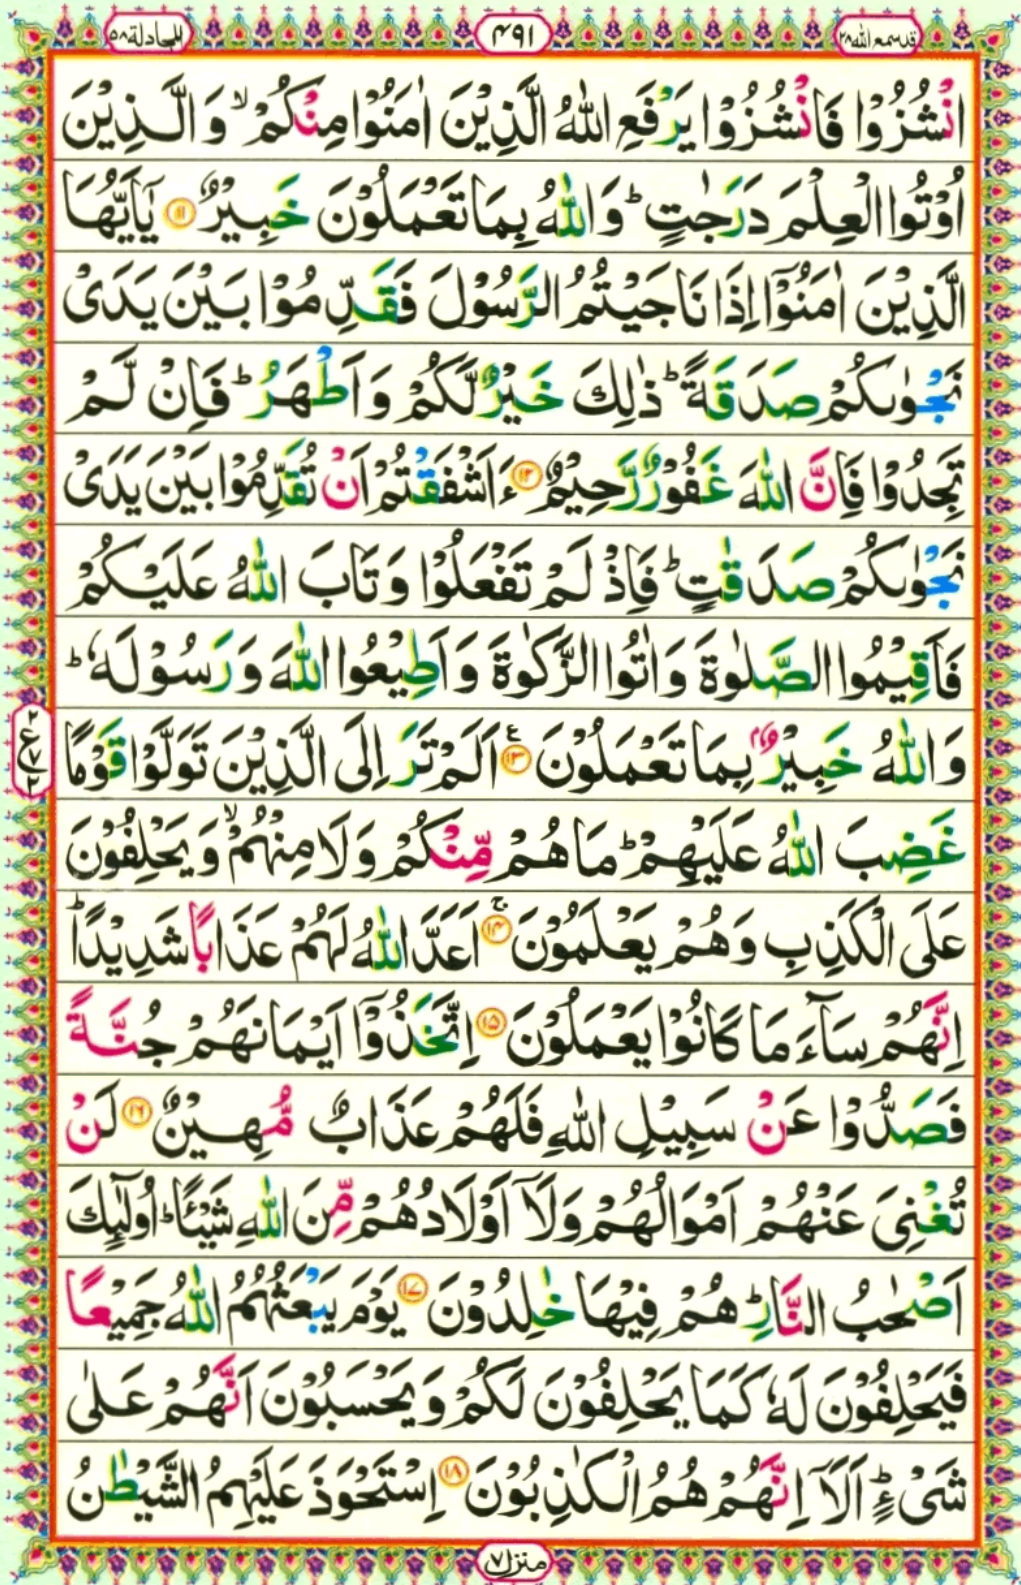 قد سمع اللہ ۲۸
۴۹۱
المجادلة ۵۸
انْشُزُوْا فَانْشُزُوْا یَرْفَعِ اللّٰهُ الَّذِیْنَ اٰمَنُوْا مِنْكُمْ ۙ وَ الَّذِیْنَ
اُوْتُوا الْعِلْمَ دَرَجٰتٍ ؕ وَ اللّٰهُ بِمَا تَعْمَلُوْنَ خَبِیْرٌ ۝۱۱ یٰۤاَیُّهَا
الَّذِیْنَ اٰمَنُوْۤا اِذَا نَاجَیْتُمُ الرَّسُوْلَ فَقَدِّمُوْا بَیْنَ یَدَیْ
نَجْوٰىكُمْ صَدَقَةً ؕ ذٰلِكَ خَیْرٌ لَّكُمْ وَ اَطْهَرُ ؕ فَاِنْ لَّمْ
تَجِدُوْا فَاِنَّ اللّٰهَ غَفُوْرٌ رَّحِیْمٌ ۝۱۲ ءَاَشْفَقْتُمْ اَنْ تُقَدِّمُوْا بَیْنَ یَدَیْ
نَجْوٰىكُمْ صَدَقٰتٍ ؕ فَاِذْ لَمْ تَفْعَلُوْا وَ تَابَ اللّٰهُ عَلَیْكُمْ
فَاَقِیْمُوا الصَّلٰوةَ وَ اٰتُوا الزَّكٰوةَ وَ اَطِیْعُوا اللّٰهَ وَ رَسُوْلَهٗ ؕ
وَ اللّٰهُ خَبِیْرٌۢ بِمَا تَعْمَلُوْنَ ۝۱۳ اَلَمْ تَرَ اِلَى الَّذِیْنَ تَوَلَّوْا قَوْمًا
غَضِبَ اللّٰهُ عَلَیْهِمْ ؕ مَا هُمْ مِّنْكُمْ وَ لَا مِنْهُمْ ۙ وَ یَحْلِفُوْنَ
عَلَى الْكَذِبِ وَ هُمْ یَعْلَمُوْنَ ۝۱۴ۚ اَعَدَّ اللّٰهُ لَهُمْ عَذَابًا شَدِیْدًا ؕ
اِنَّهُمْ سَآءَ مَا كَانُوْا یَعْمَلُوْنَ ۝۱۵ اِتَّخَذُوْۤا اَیْمَانَهُمْ جُنَّةً
فَصَدُّوْا عَنْ سَبِیْلِ اللّٰهِ فَلَهُمْ عَذَابٌ مُّهِیْنٌ ۝۱۶ لَنْ
تُغْنِیَ عَنْهُمْ اَمْوَالُهُمْ وَ لَاۤ اَوْلَادُهُمْ مِّنَ اللّٰهِ شَیْـًٔا ؕ اُولٰٓىِٕكَ
اَصْحٰبُ النَّارِ ؕ هُمْ فِیْهَا خٰلِدُوْنَ ۝۱۷ یَوْمَ یَبْعَثُهُمُ اللّٰهُ جَمِیْعًا
فَیَحْلِفُوْنَ لَهٗ كَمَا یَحْلِفُوْنَ لَكُمْ وَ یَحْسَبُوْنَ اَنَّهُمْ عَلٰى
شَیْءٍ ؕ اَلَاۤ اِنَّهُمْ هُمُ الْكٰذِبُوْنَ ۝۱۸ اِسْتَحْوَذَ عَلَیْهِمُ الشَّیْطٰنُ
۲
ع
۷
۲
منزل ۷